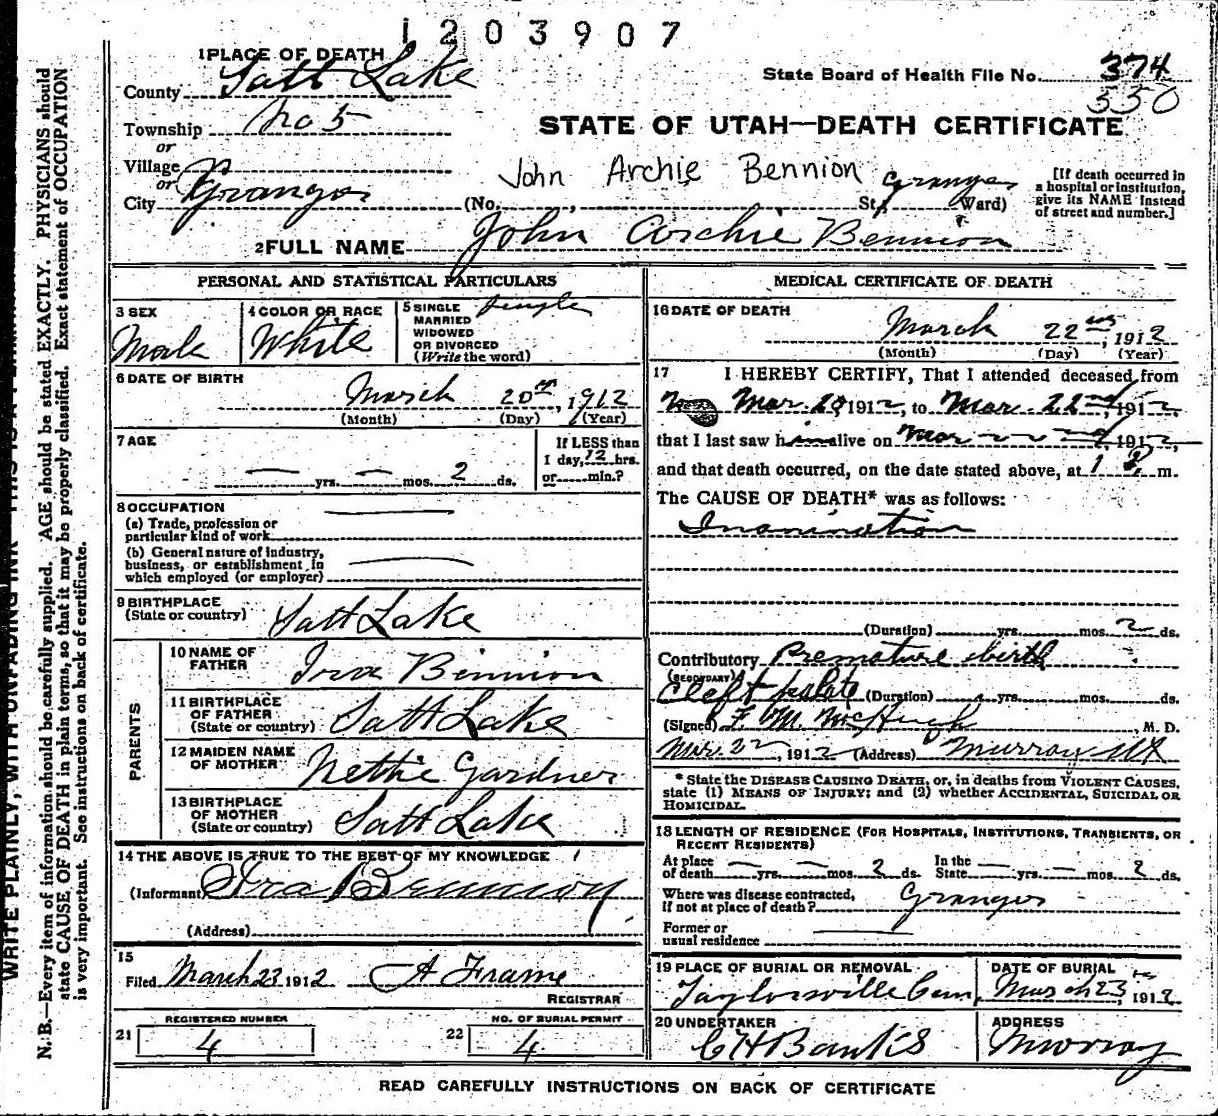 1203907
1 PLACE OF DEATH
County Salt Lake
State Board of Health File No. 374
550
Township No 5
STATE OF UTAH—DEATH CERTIFICATE
or
Village
or
City Granger
John Archie Bennion
(No. , St., Granger Ward)
[If death occurred in
a hospital or institution,
give its NAME instead
of street and number.]
2 FULL NAME John Archie Bennion
PERSONAL AND STATISTICAL PARTICULARS
3 SEX
Male
4 COLOR OR RACE
White
5 SINGLE
MARRIED
WIDOWED
OR DIVORCED
(Write the word)
Single
6 DATE OF BIRTH
March 20th, 1912
(Month) (Day) (Year)
7 AGE
— yrs. — mos. 2 ds.
If LESS than
1 day, 12 hrs.
or min.?
8 OCCUPATION
(a) Trade, profession or
particular kind of work
(b) General nature of industry,
business, or establishment in
which employed (or employer)
9 BIRTHPLACE
(State or country) Salt Lake
PARENTS
10 NAME OF
FATHER Ira Bennion
11 BIRTHPLACE
OF FATHER
(State or country) Salt Lake
12 MAIDEN NAME
OF MOTHER Nettie Gardner
13 BIRTHPLACE
OF MOTHER
(State or country) Salt Lake
14 THE ABOVE IS TRUE TO THE BEST OF MY KNOWLEDGE
(Informant) Ira Bennion
(Address)
15
Filed March 23 1912 A Frame
REGISTRAR
REGISTERED NUMBER
21 4
NO. OF BURIAL PERMIT
22 4
MEDICAL CERTIFICATE OF DEATH
16 DATE OF DEATH
March 22nd, 1912
(Month) (Day) (Year)
17 I HEREBY CERTIFY, That I attended deceased from
Mar. 20 1912, to Mar. 22nd, 1912,
that I last saw him alive on Mar 22nd, 1912,
and that death occurred, on the date stated above, at 1 m.
The CAUSE OF DEATH* was as follows:
Inanination
(Duration) yrs. mos. 2 ds.
Contributory Premature birth
(SECONDARY)
Cleft palate (Duration) yrs. mos. ds.
(Signed) F M McHugh, M. D.
Mar. 22, 1912 (Address) Murray Ut
* State the DISEASE CAUSING DEATH, or, in deaths from VIOLENT CAUSES,
state (1) MEANS OF INJURY; and (2) whether ACCIDENTAL, SUICIDAL OR
HOMICIDAL.
18 LENGTH OF RESIDENCE (FOR HOSPITALS, INSTITUTIONS, TRANSIENTS, OR
RECENT RESIDENTS)
At place
of death — yrs. — mos. 2 ds.
In the
State — yrs. — mos. 2 ds.
Where was disease contracted,
if not at place of death? Granger
Former or
usual residence
19 PLACE OF BURIAL OR REMOVAL
Taylorsville Cem.
DATE OF BURIAL
March 23, 1912
20 UNDERTAKER
C H Banks
ADDRESS
Murray
READ CAREFULLY INSTRUCTIONS ON BACK OF CERTIFICATE
WRITE PLAINLY, WITH UNFADING INK
N. B.—Every item of information should be carefully supplied. AGE should be stated EXACTLY. PHYSICIANS should
state CAUSE OF DEATH in plain terms, so that it may be properly classified. Exact statement of OCCUPATION
is very important. See instructions on back of certificate.